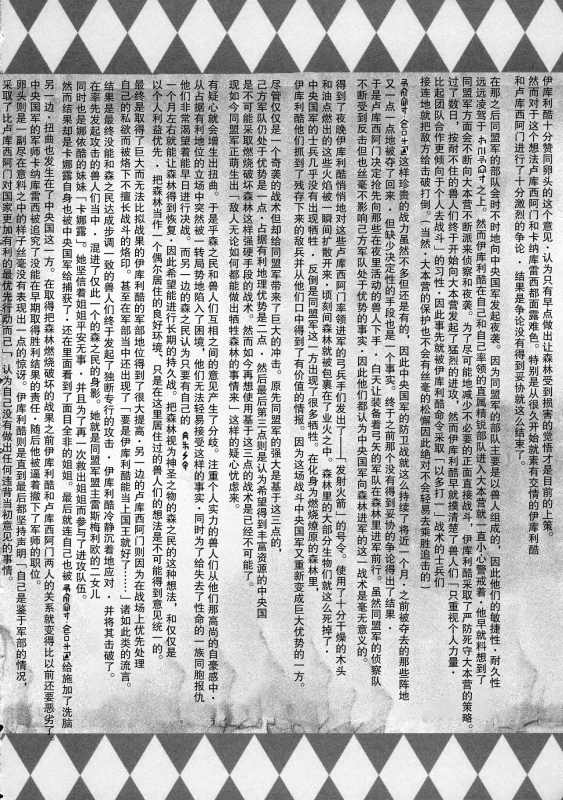 伊库利酷十分赞同卵头的这个意见，认为只有早点做出让森林受到损害的觉悟才是目前的上策。
然而对于这个想法卢库西阿门和卡纳库雷西都面露难色。特别是从很久开始就素有交情的伊库利酷
和卢库西阿门进行了十分激烈的争论，结果是争论也没有得到妥协就这么结束了。
在那之后同盟军的部队会时不时地向中央国军发起夜袭。因为同盟军的部队主要是以兽人组成的，因此他们的敏捷性・耐久性
远远凌驾于 之上。然而伊库利酷在自己和自己率领的直属精锐部队进入大本营就一直小心警戒着，他早就料想到了
同盟军方面会不断向大本营不断派来侦察和夜袭。为了尽可能地减少不必要的正面直接战斗，伊库利酷采取了严防死守大本营的策略。
过了数日，按耐不住的兽人们终于开始向大本营发起了猛烈的进攻，然而伊库利酷早就摸清楚了兽人们「只重视个人力量・
比起团队合作更倾向于个人去战斗」的习性，因此事先就被伊库利酷命令采取「以多打一」战术的士兵们
接连地就把敌方给击破打倒。（当然，大本营的保护也不会有丝毫的松懈因此绝对不会轻易去乘胜追击的）
 这样珍贵的战力虽然不多但还是有的，因此中央国军的防卫战就这么持续了将近一个月，之前被夺去的那些阵地
又一点一点地被夺了回来，但缺少决定性的手段也是一个事实。终于之前那个没有得到妥协的争论得出了结果，
于是卢库西阿门决定抢先用那些在夜里活动的兽人下手，白天让装备着弓矢的军队在森林里进军前行。虽然同盟军的侦察队
不断受到反击但也丝毫不影响己方军队处于优势的事实，因此他们都认为中央国军向森林进军的这一战术是毫无意义的。
得到了夜晚伊库利酷悄悄地对这些卢库西阿门率领进军的弓兵手们发出了——「发射火箭」的号令。使用了十分干燥的木头
和油点燃出的这些火焰被一瞬间扩散开来，顷刻间森林就被包裹在了业火之中。森林里的大部分生物们就这么死掉了，
中央国军的士兵几乎没有出现牺牲，反倒是同盟军这一方出现了很多牺牲。在化身为燃烧燎原的森林里，
伊库利酷他们抓到了残存下来的敌兵并从他们口中得到了有价值的情报。因为这场战斗中央国军又重新变成巨大优势的一方。
尽管仅仅是一个奇袭的战术但却给同盟军带来了巨大的冲击。原先同盟军的强大是基于这三点的，
己方军队仍处于优势是一点，占据有利地理优势是二点，然后最后第三点则是认为希望得到丰富资源的中央国
是不可能采取燃烧破坏森林这样强硬手段的战术。然而如今再想使用基于这三点的战术是已经不可能了。
现如今同盟军正萌生出「敌人无论如何都能做出牺牲森林的事情来」这样的疑心忧虑来。
有疑心就会增生出扭曲。于是乎森之民和兽人们互相之间的意见产生了分歧。注重个人实力的兽人们从他们那高尚的自豪感中・
从占据有利地位的立场中突然被一转局势地陷入了困境，他们无法轻易接受这样的事实，同时为了给失去了性命的一族同胞报仇
他们非常渴望着能早日进行决战。而另一边的森之民认为只要有自己的 ，
一个月左右就能让森林得到恢复，因此希望能进行长期的持久战。把森林视为神圣之物的森之民的这种想法，和仅仅是
以个人利益优先，把森林当作一个偶尔居住的良好环境、只是在这里居住过的兽人们的想法是不可能得到意见统一的。
最终是取得了巨大而无法比拟战果的伊库利酷的军部地位得到了很大提高，另一边的卢库西阿门则因为在战场上优先处理
自己的私欲而被烙下不擅长战斗的烙印。甚至在军部当中还出现了「要是伊库利酷能当上国王就好了……」诸如此类的流言。
结果是最终没能和森之民达成步调一致的兽人们终于发起了独断专行的攻击，伊库利酷冷静沉着地应对，并将其击破了。
在率先发起攻击的兽人们当中，混进了仅此一个的森之民的身影。她就是同盟军盟主雷斯梅利欧的二女儿
同时也是娜依酷的妹妹「卡娜露」。她坚信着姐姐平安无事，并且为了再一次救出姐姐而参与了进攻队伍。
然而结果却是卡娜露自身也被中央国军给捕获了，还在里面看到了面目全非的姐姐。最后就连自己也被 给施加了洗脑
另一边，扭曲也发生在了中央国这一方。在取得把森林燃烧破坏的战果之前伊库利酷和卢库西阿门两人的关系就变得比以前还要恶劣了。
中央国军的军师卡纳库雷西被追究了没能在早期取得胜利结果的责任，随后他被逼着撤下了军师的职位。
卵头则是一副尽在意料之中的样子丝毫没有表现出一点的惊讶。伊库利酷则是直到最后都坚持声明「自己是鉴于军部的情况，
采取了比卢库西阿门对国家更加有利的最优先行动而已」，认为自己没有做出任何违背当初意见的事情。